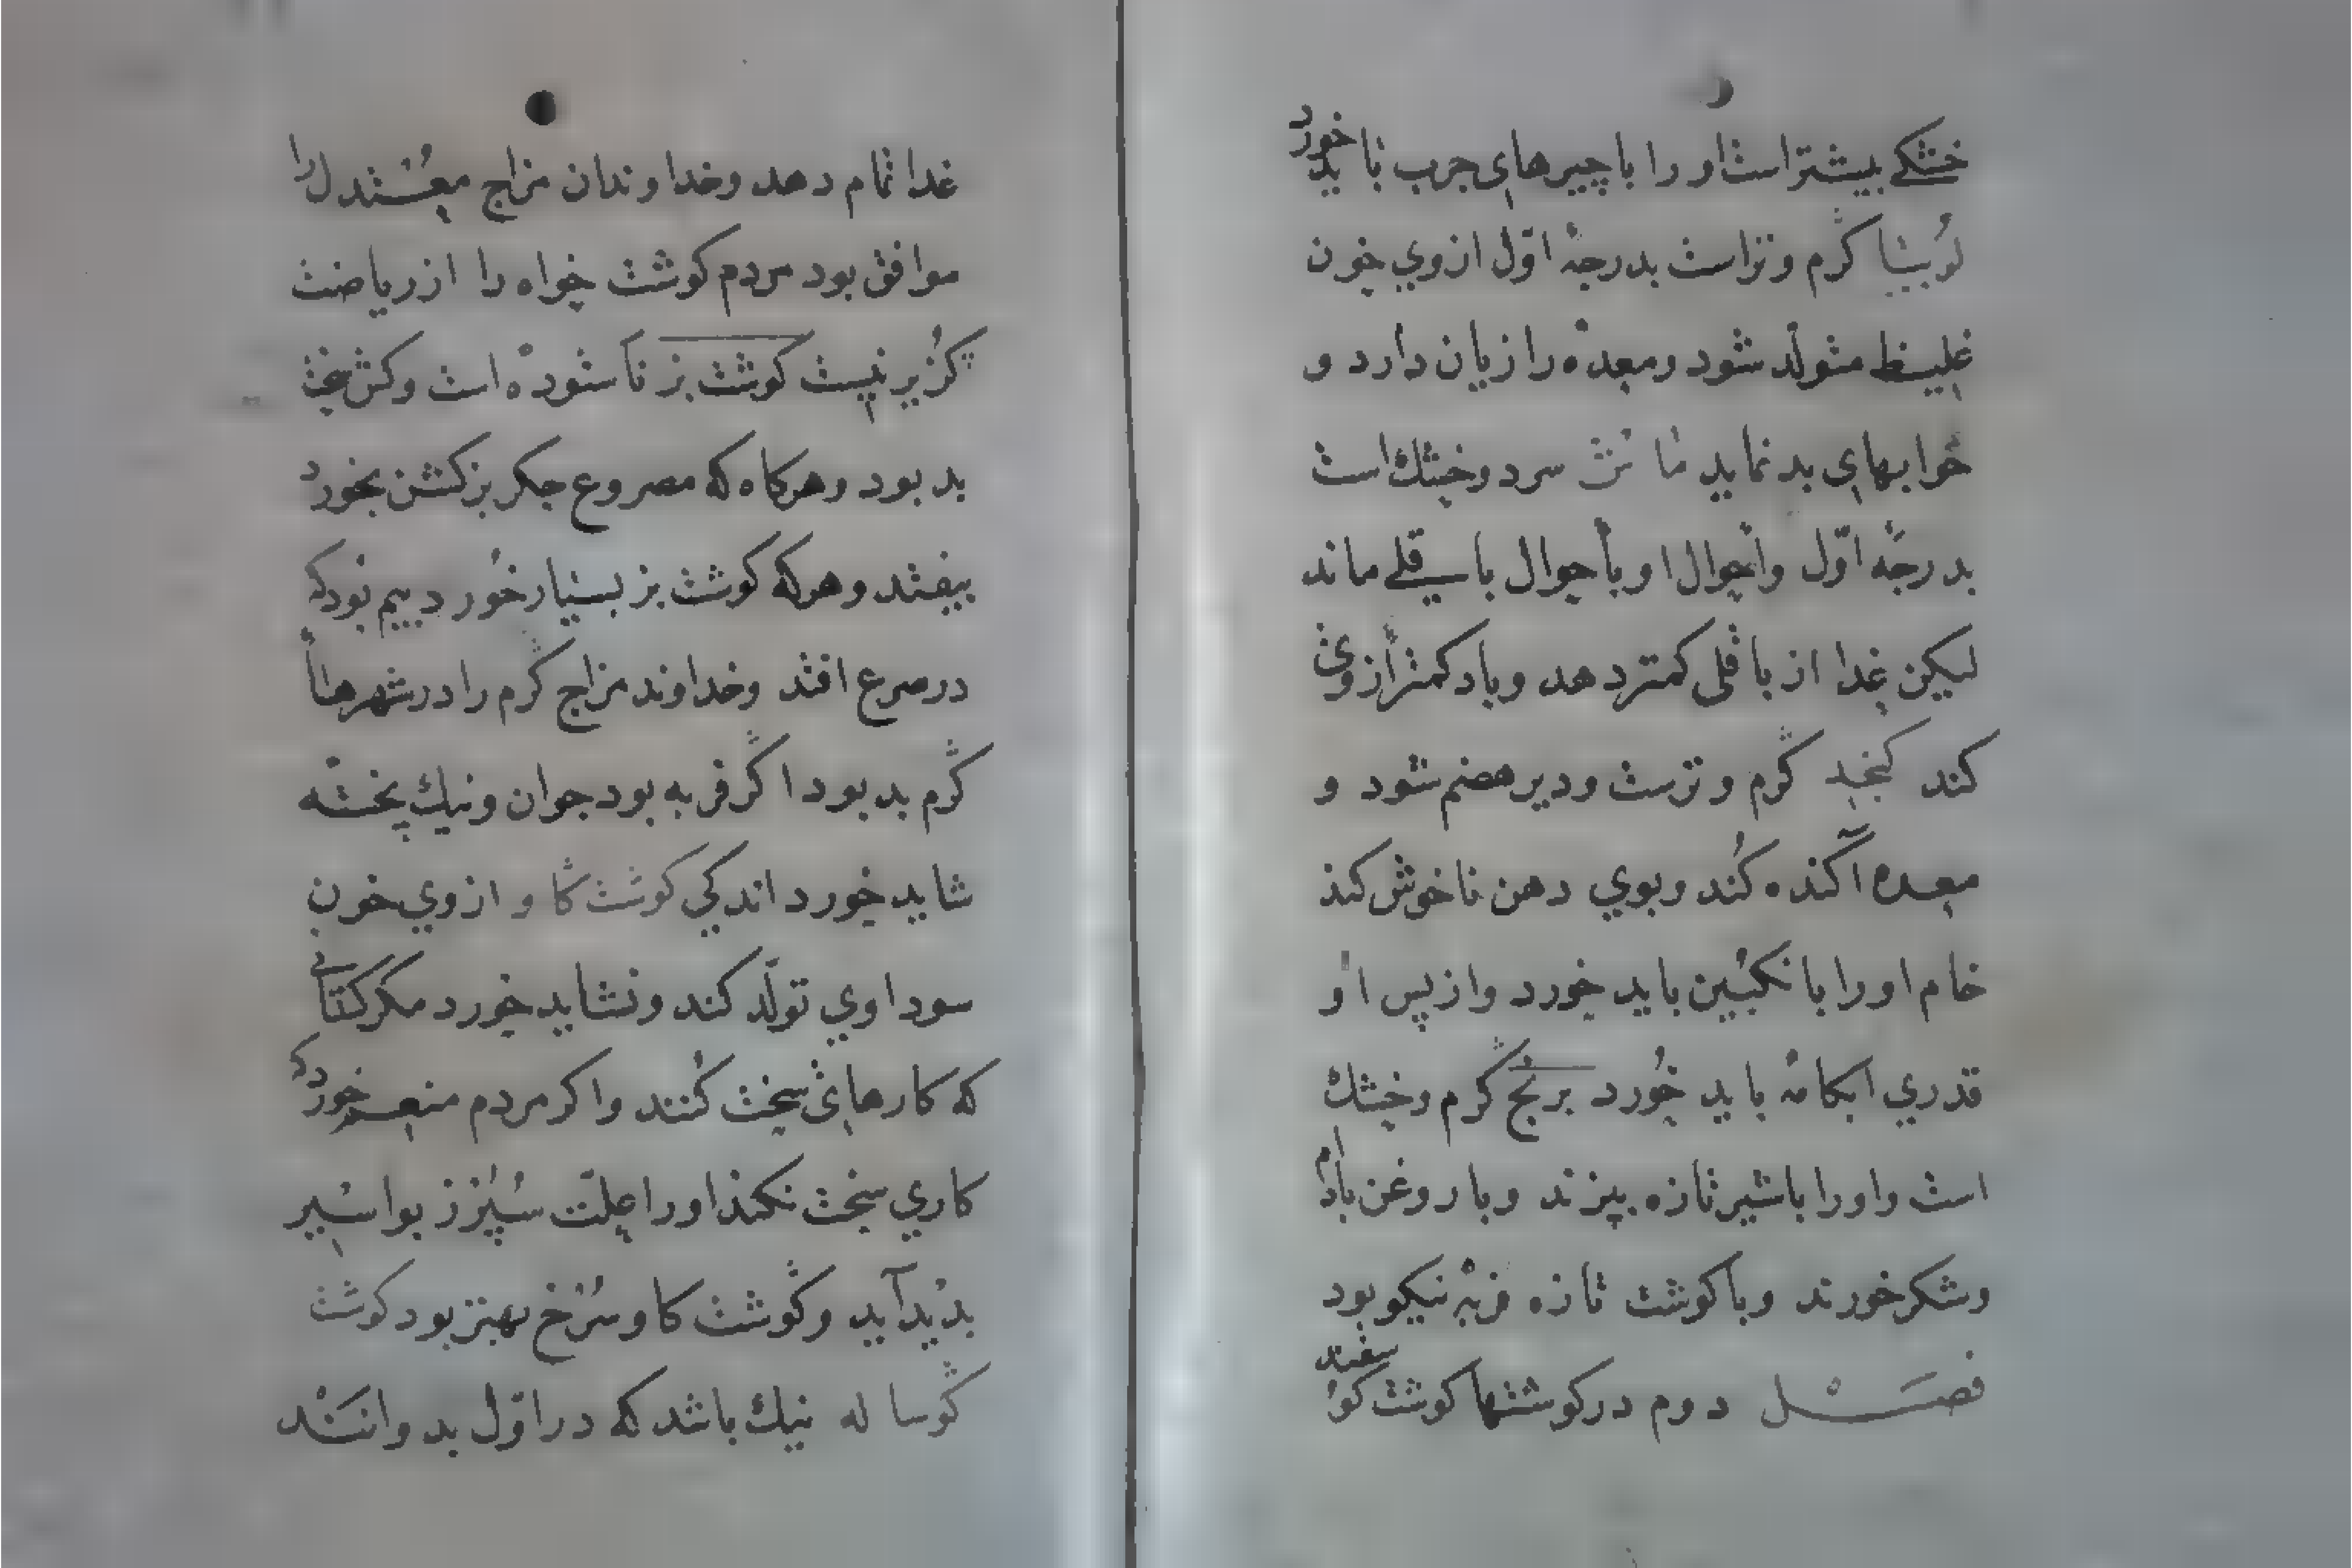 خشكی بیشتر است او را با چیزهای چرب باید خورد
لوبیا گرم و تر است بدرجهٔ اوّل از وي خون
غلیظ متولّد شود و معده را زیان دارد و
خوابهای بد نماید ماش سرد و خشك است
بدرجهٔ اوّل و احوال او بأحوال باسقلی ماند
لیکن غدا از باقلی کمتر دهد و باد کمتر از وی
کند کنجد گرم و ترست و دیر هضم شود و
معده آکنده کُند و بوي دهن ناخوش کند
خام او را با نکبین باید خورد و از پس او
قدري ابکامهٔ باید خُورد برنج گرم و خشك
است و او را با شیر تازه بپزند و با روغن بادام
و شکر خورند و با کوشت تازه فربه نیکو بود
فصل دوم در کوشتها کوشت کوسفند
غدا تمام دهد و خداوندان مزاج معتدل را
موافق بود مردم کوشت خواه را از ریاضت
گزیر نیست کوشت بز ناستوده است و کشن سخت
بد بود و هرکاه که مصروع جکر بز کشن بخورد
بیفتد و هرکه کوشت بز بسیار خُورد بیم بود که
در صرع افتد و خداوند مزاج گرم را در شهرهاأ
گرم بد بود اگر فربه بود جوان و نیك پخته
شاید خورد اندکی کوشت کاو از وي خون
سوداوي تولّد کند و نشاید خورد مکر کسانی
که کارهای سخت کُنند و اکر مردم متنعم خورد که
کاري سخت نکند او را علّت سپرز بواسیر
بدید آید و گوشت کاو سُرخ بهتر بود کوشت
گوساله نیك باشد که در اوّل بدوانند